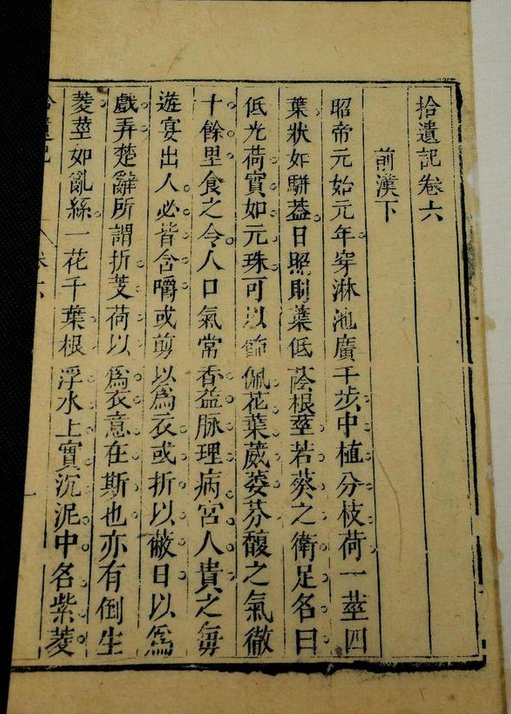 拾遺記卷六
前漢下
昭帝元始元年穿淋池廣千步中植分枝荷一莖四
葉狀如騈葢日照則葉低蔭根莖若葵之衛足名曰
低光荷實如元珠可以飾佩花葉葳萎芬馥之氣徹
十餘里食之令人口氣常香益脉理病宮人貴之每
遊宴出入必皆含嚼或剪以為衣或折以蔽日以為
戲弄楚辭所謂折芰荷以為衣意在斯也亦有倒生
菱莖如亂絲一花千葉根浮水上實沉泥中名紫菱